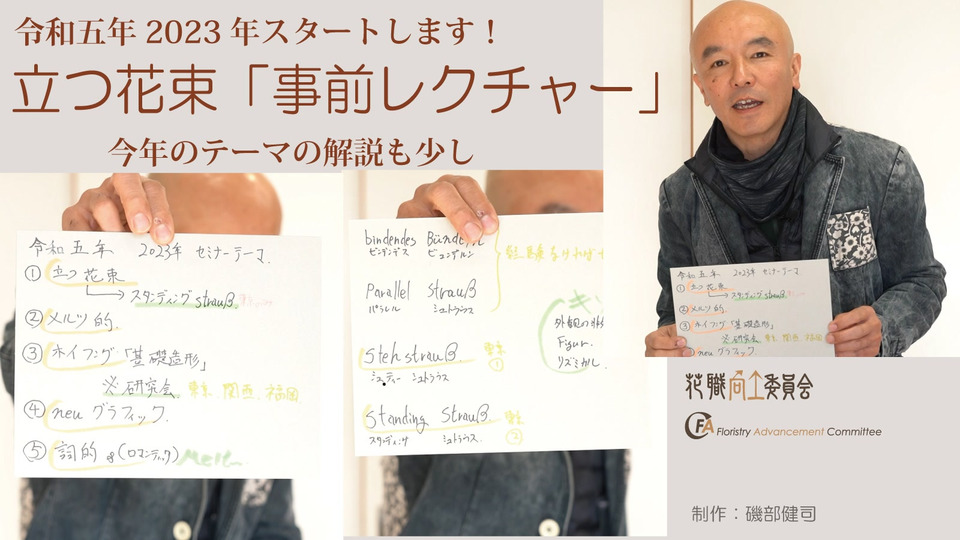 令和五年 2023 年スタートします！
立つ花束「事前レクチャー」
今年のテーマの解説も少し
令和五年 2023年 セミナーテーマ.
① 立つ 花束
スタンディング strauß
② メルツ的.
③ ホイフング「基礎造形」
※研究会 東京. 関西. 福岡
④ neu グラフィック.
⑤ 詞的 &(ロマンティック)
bindendes
ビンデンデス ビュンデルン
Parallel strauß
パラレル シュトラウス
steh strauß. 東京①
シュテー シュトラウス
standing strauß. 東京②
スタンディング シュトラウス.
Figur.
リズミカル.
令和五年 2023年 セミナーテーマ
① 立つ 花束
スタンディング strauß
② メルツ的.
③ ホイフング「基礎造形」
※研究会 東京 関西 福岡
④ neu グラフィック
花職向上委員会
CFA Floristry Advancement Committee
制作：磯部健司